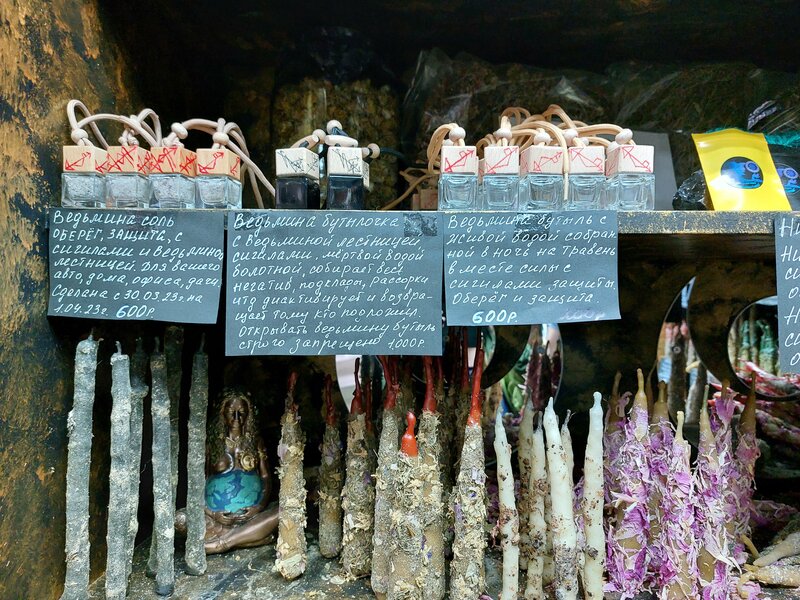 Ведьмина соль
оберег, защита, с
сигилами и Ведьмино
лестницей. Для вашего
авто, дома, офиса, дачи
Сделана с 30.03.23г на
1.04.23г. 600р.
Ведьмина бутылочка
с Ведьминой лестницей,
сигилами, мёртвой водой
болотной, собирает весь
негатив, подклады, рассорки
итд диактивирует и возвра-
щает тому кто подложил
открывать ведьмину бутыль
строго запрещено 1000р.
Ведьмина бутыль с
Живой водой собран
ной в ночь на Травень
в месте силы с
сигилами защиты.
Оберег и защита.
600р.